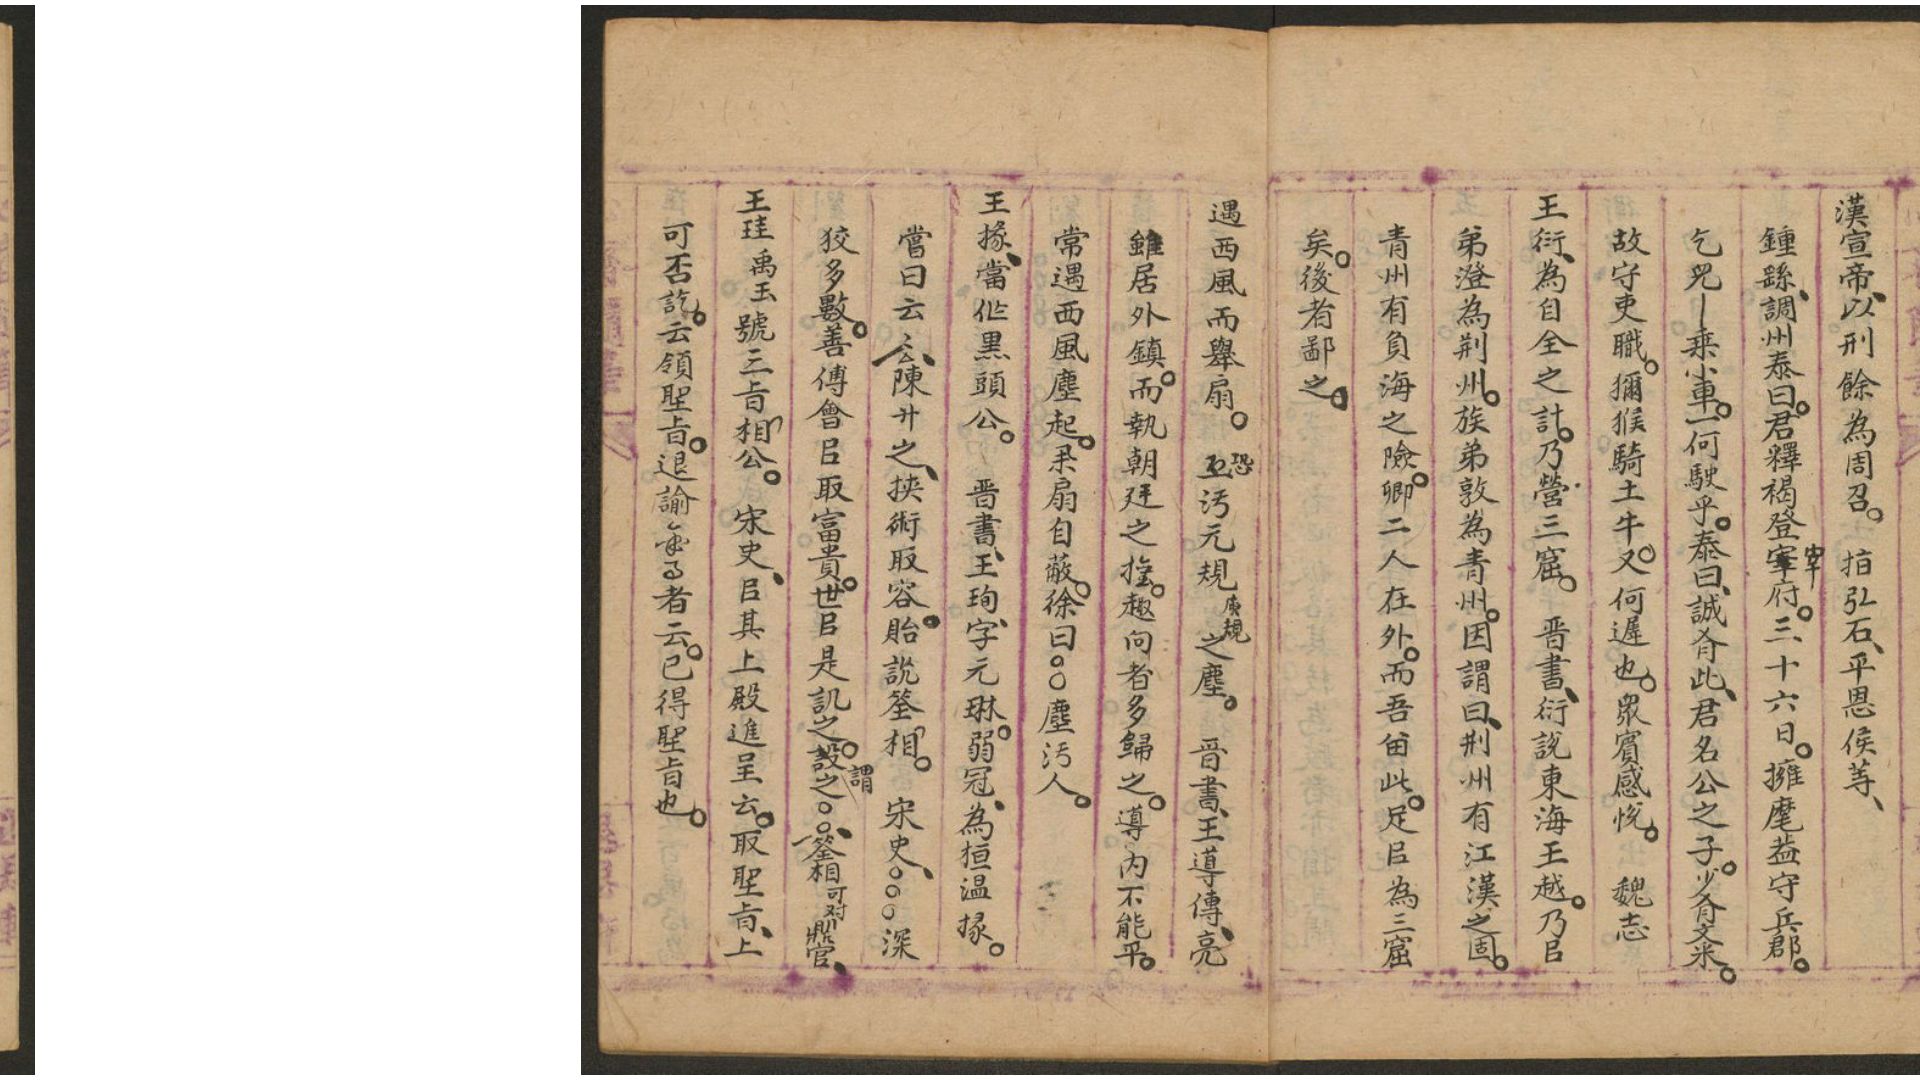 漢宣帝、以刑餘為周召。 指弘石、平恩侯等、
鍾繇、調州泰曰。君釋褐登宰府。三十六日。擁麾盖守兵郡。
乞兒乗小車。一何駛乎。泰曰、誠有此、君名公之子。少有文米。
故守吏職。獼猴騎土牛。又何遲也。衆賓感悅。 魏志
王衍、為自全之計。乃營三窟。 晋書、衍說東海王越。乃㠯
弟澄為荆州。族弟敦為青州。因謂曰、荆州有江漢之固。
青州有負海之險。卿二人在外。而吾留此。足㠯為三窟
矣。後者鄙之。
遇西風而舉扇。 恐汚元規庾規之塵。 晋書、王導傳、亮
雖居外鎮。而執朝廷之權。趣向者多歸之。導內不能平。
常遇西風塵起。扇自蔽。徐曰。○塵汚人。
王掾、當作黒頭公。 晋書、王珣、字元琳。弱冠、為桓温掾。
嘗曰云云陳升之、挟術取容。貽説筌相。 宋史、○○深
狡多數。善傅會㠯取富貴。世㠯是訊之。謂之○○、筌相可对鼎官、
王珪禹玉號三旨相公。 宋史、㠯其上殿進呈云。取聖旨、上
可否訖。云領聖旨。退諭者云。已得聖旨也。